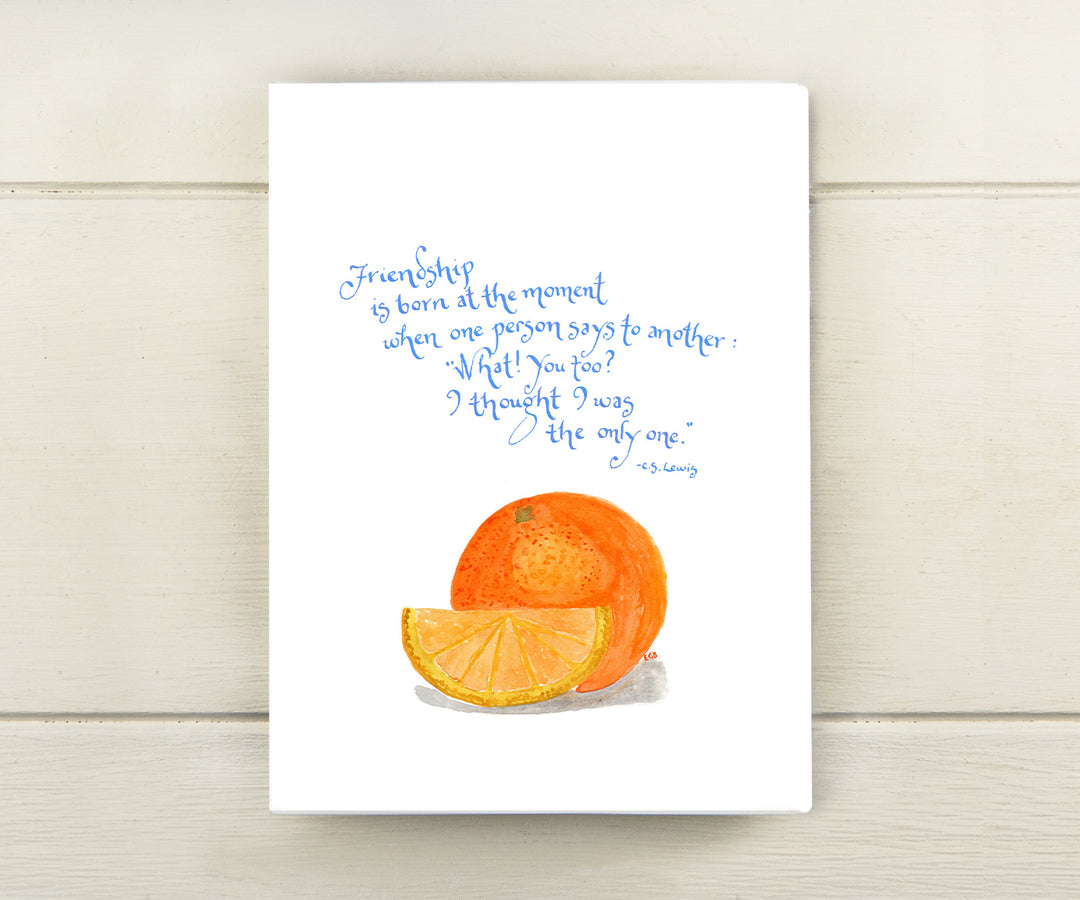 Friendship
is born at the moment
when one person says to another:
"What! You too?
I thought I was
the only one."
-C.S. Lewis
EGB